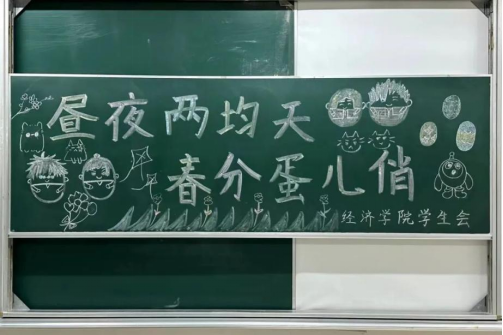 昼夜两均天
春分蛋儿俏
经济学院学生会